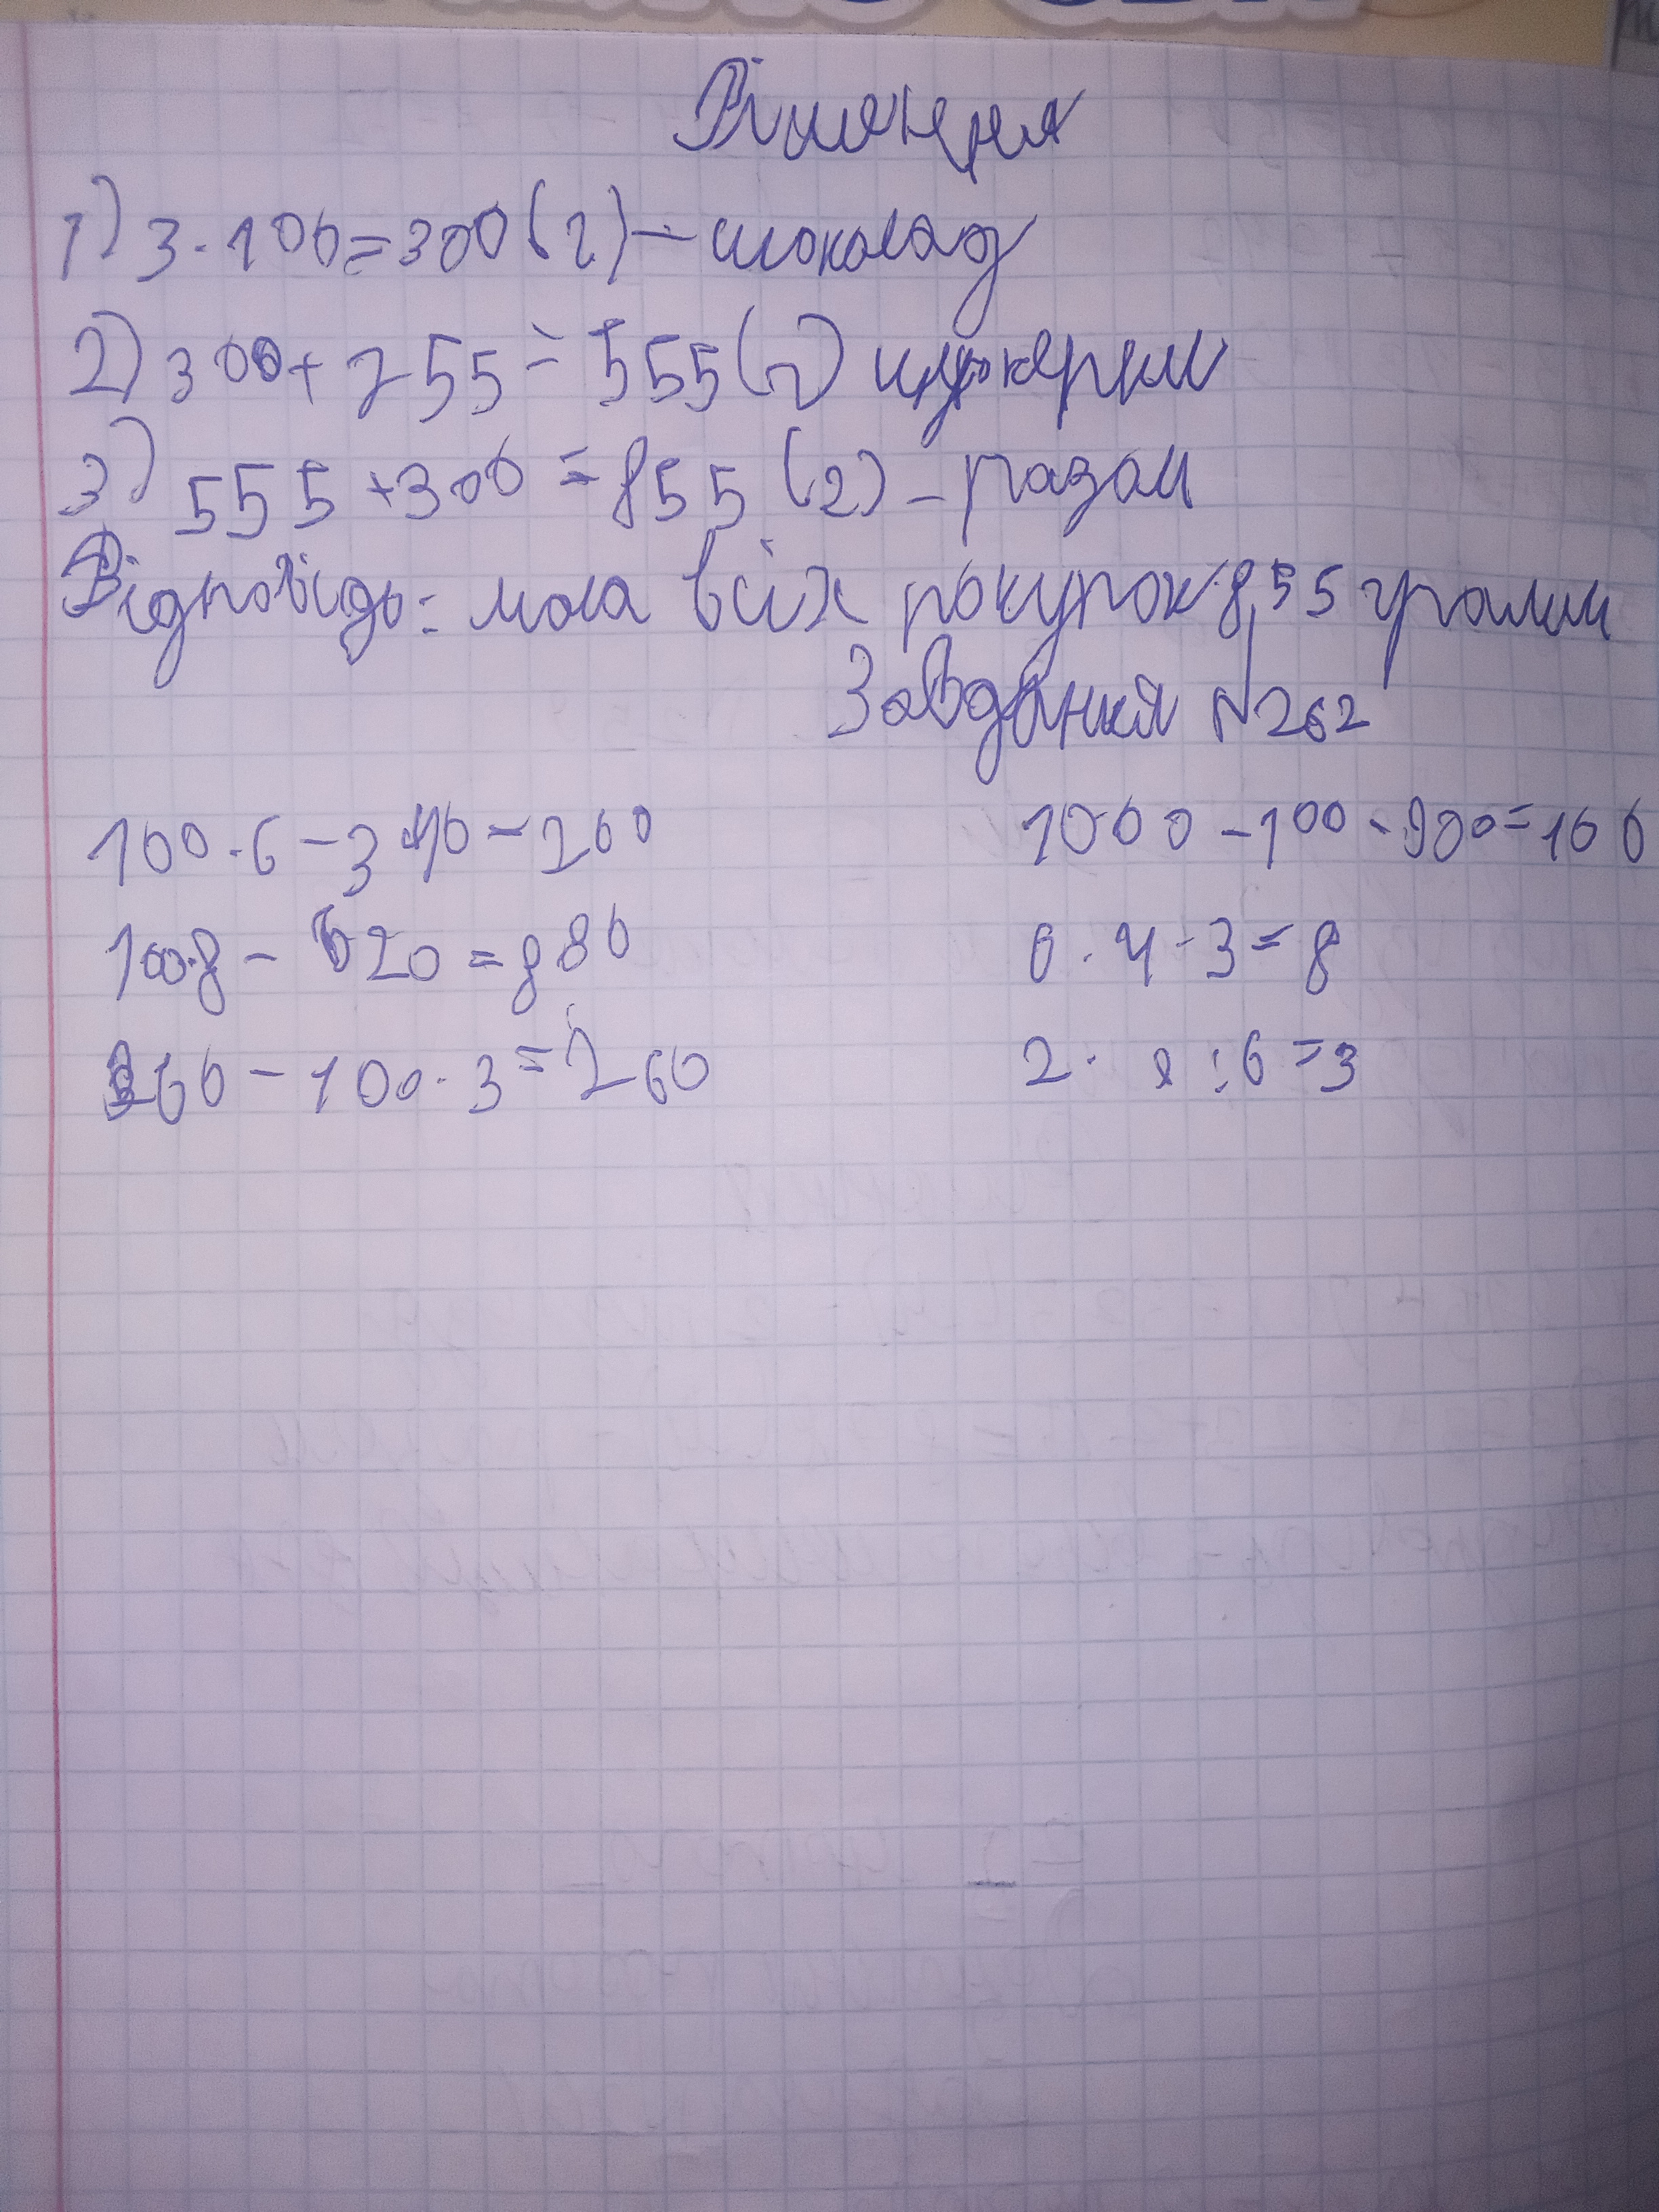 Рішення
1) 3·100=300(г)-шоколад
2) 300+255=555(г) цукерки
3) 555+300=855(г)-разом
Відповідь: маса всіх покупок 855 грамм
Завдання №262
100·6-340=260
1000-100·900=100
100·8-620=880
6·4-3=8
360-100·3=260
2· :6=3